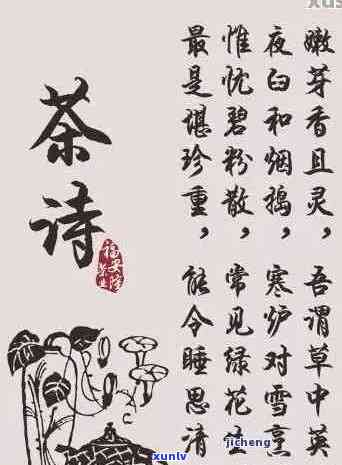 茶诗
嫩芽香且灵，吾谓草中英
夜臼和烟捣，寒炉对雪烹
惟忧碧粉散，常见绿花生
最是堪珍重，能令睡思清
jicheng
xunlv